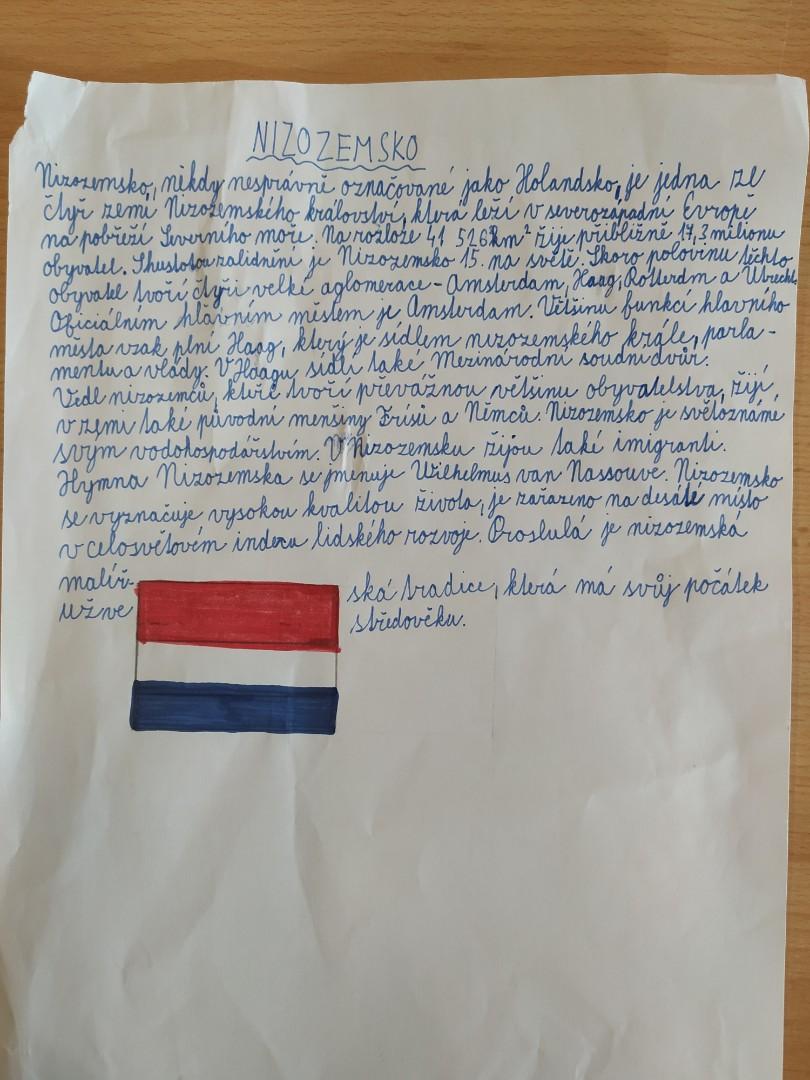 NIZOZEMSKO
Nizozemsko, někdy nesprávně označované jako Holandsko, je jedna ze
čtyř zemí Nizozemského království, která leží v severozápadní Evropě
na pobřeží Severního moře. Na rozloze 41 526 km² žije přibližně 17,3 milionu
obyvatel. S hustotou zalidnění je Nizozemsko 15. na světě. Skoro polovinu těchto
obyvatel tvoří čtyři velké aglomerace - Amsterdam, Haag, Rotterdm a Utrecht.
Oficiálním hlavním městem je Amsterdam. Většinu funkcí hlavního
města vzak plní Haag, který je sídlem nizozemského krále, parla-
mentu a vlády. V Haagu sídlí také Mezinárodní soudní dvůr.
Vedl nizozemců, kteří tvoří převážnou většinu obyvatelstva, žijí
v zemi také původní menšiny Frísů a Němců. Nizozemsko je světoznámé
svým vodohospodářstvím. V Nizozemsku žijou také imigranti.
Hymna Nizozemska se jmenuje Wilhelmus van Nassouve. Nizozemsko
se vyznačuje vysokou kvalitou života, je zařazeno na desáté místo
v celosvětovém indexu lidského rozvoje. Proslulá je nizozemská
malíř- ská tradice, která má svůj počátek
už ve středověku.